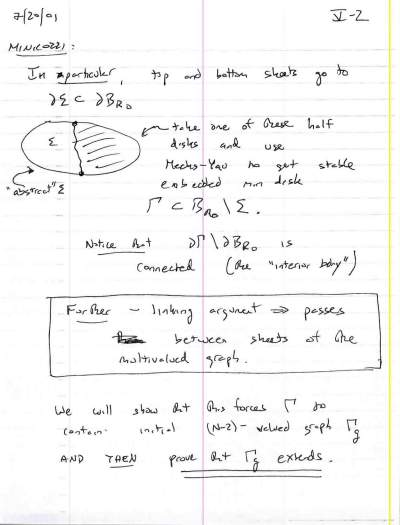 7/20/01 V-2
MINICOZZI:
In particular, top and bottom sheets go to
∂Σ ⊂ ∂B_{R_0}
Σ
"abstract" Σ
take one of these half
disks and use
Meeks-Yau to get stable
embedded min disk
Γ ⊂ B_{R_0} \ Σ.
Notice that ∂Γ \ ∂B_{R_0} is
connected (the "interior bdry")
Further - linking argument ⇒ passes
between sheets of the
multivalued graph.
We will show that this forces Γ to
contain initial (N-2)-valued graph Γ_g
AND THEN prove that Γ_g extends.